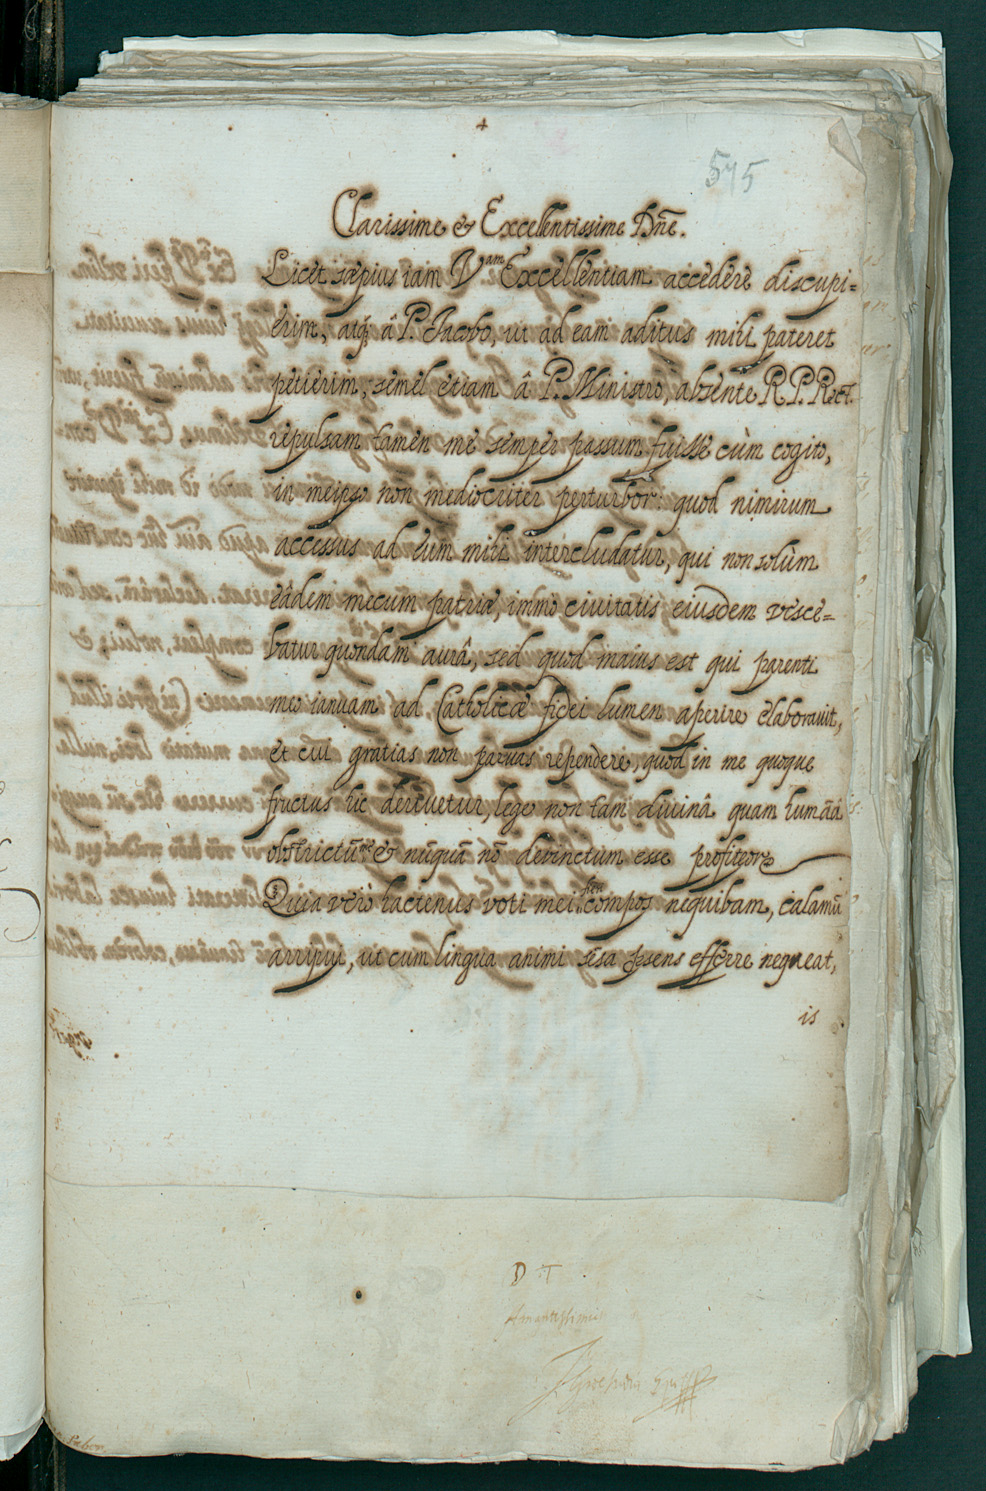 4
575
Clarissime & Excellentissime Dñe.
Licèt sæpius iam V.am Excellentiam accedere discupi=
erim, atq; â P. Jacobo, ut ad eam aditus mihi pateret
petierim, semel etiam â P. Ministro, absente R.P. Rect.
repulsam tamen me semper passum fuisse cùm cogito,
in meipso non mediocriter perturbor: quod nimirum
accessus ad eum mihi intercludatur, qui non solùm
eâdem mecum patriæ, immò ciuitatis eiusdem vesce=
batur quondam aurâ, sed quod maius est qui parenti
meo ianuam ad Catholicæ fidei lumen aperire elaborauit,
et cui gratias non paruas rependere, quod in me quoque
fructus hic deriuetur, lege non tam diuinâ quam humãâ
obstrictũ me & nũquã nõ devinctum esse profiteor
Quia verò hactenus voti mei compos nequibam, calamũ
arripui, ut cum lingua animi sẽsa p̃sens efferre nequeat,
is
D T